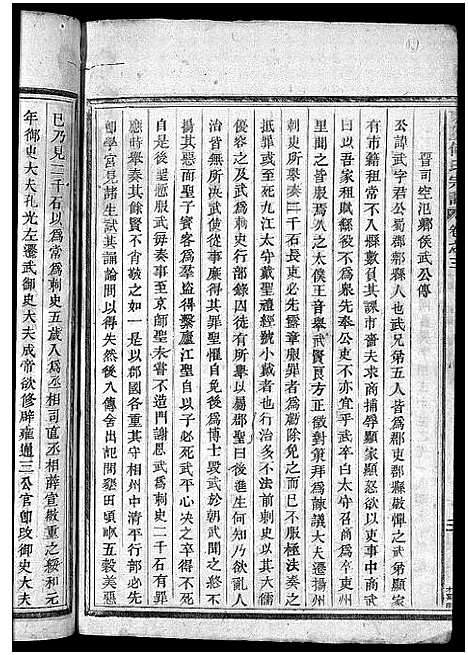 晉司空氾鄉侯武公傳
公諱武字君公蜀郡郫縣人也武兄弟五人皆爲郡吏郡縣敬憚之武弟顯家
有市籍租常不入縣數負其課市嗇夫求商捕辱顯家顯怒欲以吏事中商武
曰以吾家租賦繇役不爲衆先奉公吏不亦宜乎武卒白太守召商爲卒吏州
里聞之皆服焉太僕王音舉武賢良方正徵對策拜爲諫議大夫遷揚州
刺吏所舉奏二千石長吏必先露章服罪者爲虧除免之而已不服極法奏之
抵罪或至死九江太守戴聖禮經號小戴者也行治多不法前刺史以其大儒
優容之及武爲刺史行部錄囚徒有所舉以屬郡聖曰後進生何知乃欲亂人
治皆無所決武使從事廉得其罪聖懼自免後爲博士毀武於朝武聞之終不
揚其惡而聖子賓客爲羣盜得繫廬江聖自以子必死武平心決之卒得不死
自是後聖慚服武每奏事至京師聖未嘗不造門謝恩武爲刺史二千石有罪
應時舉奏其餘賢與不肖敬之如一是以郡國各重其守相州中清平行部必
卽學宮見諸生試其誦論問以得失然後入傳舍出記問墾田頃畝五穀美惡
已乃見二千石以爲常爲刺史五歲入爲丞相司直丞相薛宣敬重之綏和元
年御史大夫孔光左遷武御史大夫成帝欲修辟雍通三公官卽改御史大夫